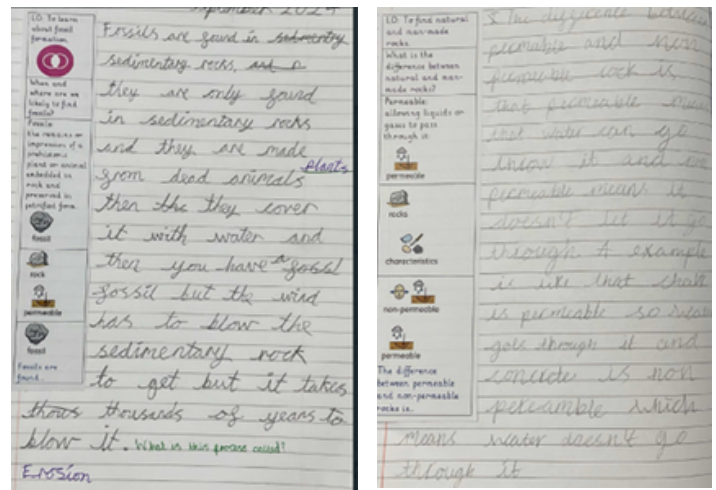 September 2024
LO: To learn
about fossil
formation.
When and
where are we
likely to find
fossils?
Fossils
the remains or
impression of a
prehistoric
plant or animal
embedded in
rock and
preserved in
petrified form.
fossil
rock
permeable
fossil
Fossils are
found...
Fossils are found in sedimentry
sedimentary rocks. and
they are only found
in sedimentary rocks
and they are made
plants
from dead animals
then the they cover
it with water and
then you have a fossil
fossil but the wind
has to blow the
sedimentary rock
to get but it takes
thows thousands of years to
blow it. What is this process called?
Erosion
LO: To find natural
and man-made
rocks.
What is the
difference between
natural and man-
made rocks?
Permeable:
allowing liquids or
gases to pass
through it.
permeable
rocks
characteristics
non-permeable
permeable
The difference
between permeable
and non-permeable
rocks is..
The difference between
permable and non
permeble rock is
that permeable
that water can go
throw it and
permeable means it
doesn't let it go
through A example
is like that chalk
is permeable so water
goes through it and
concrete is non
which
means water doesn't go
through it